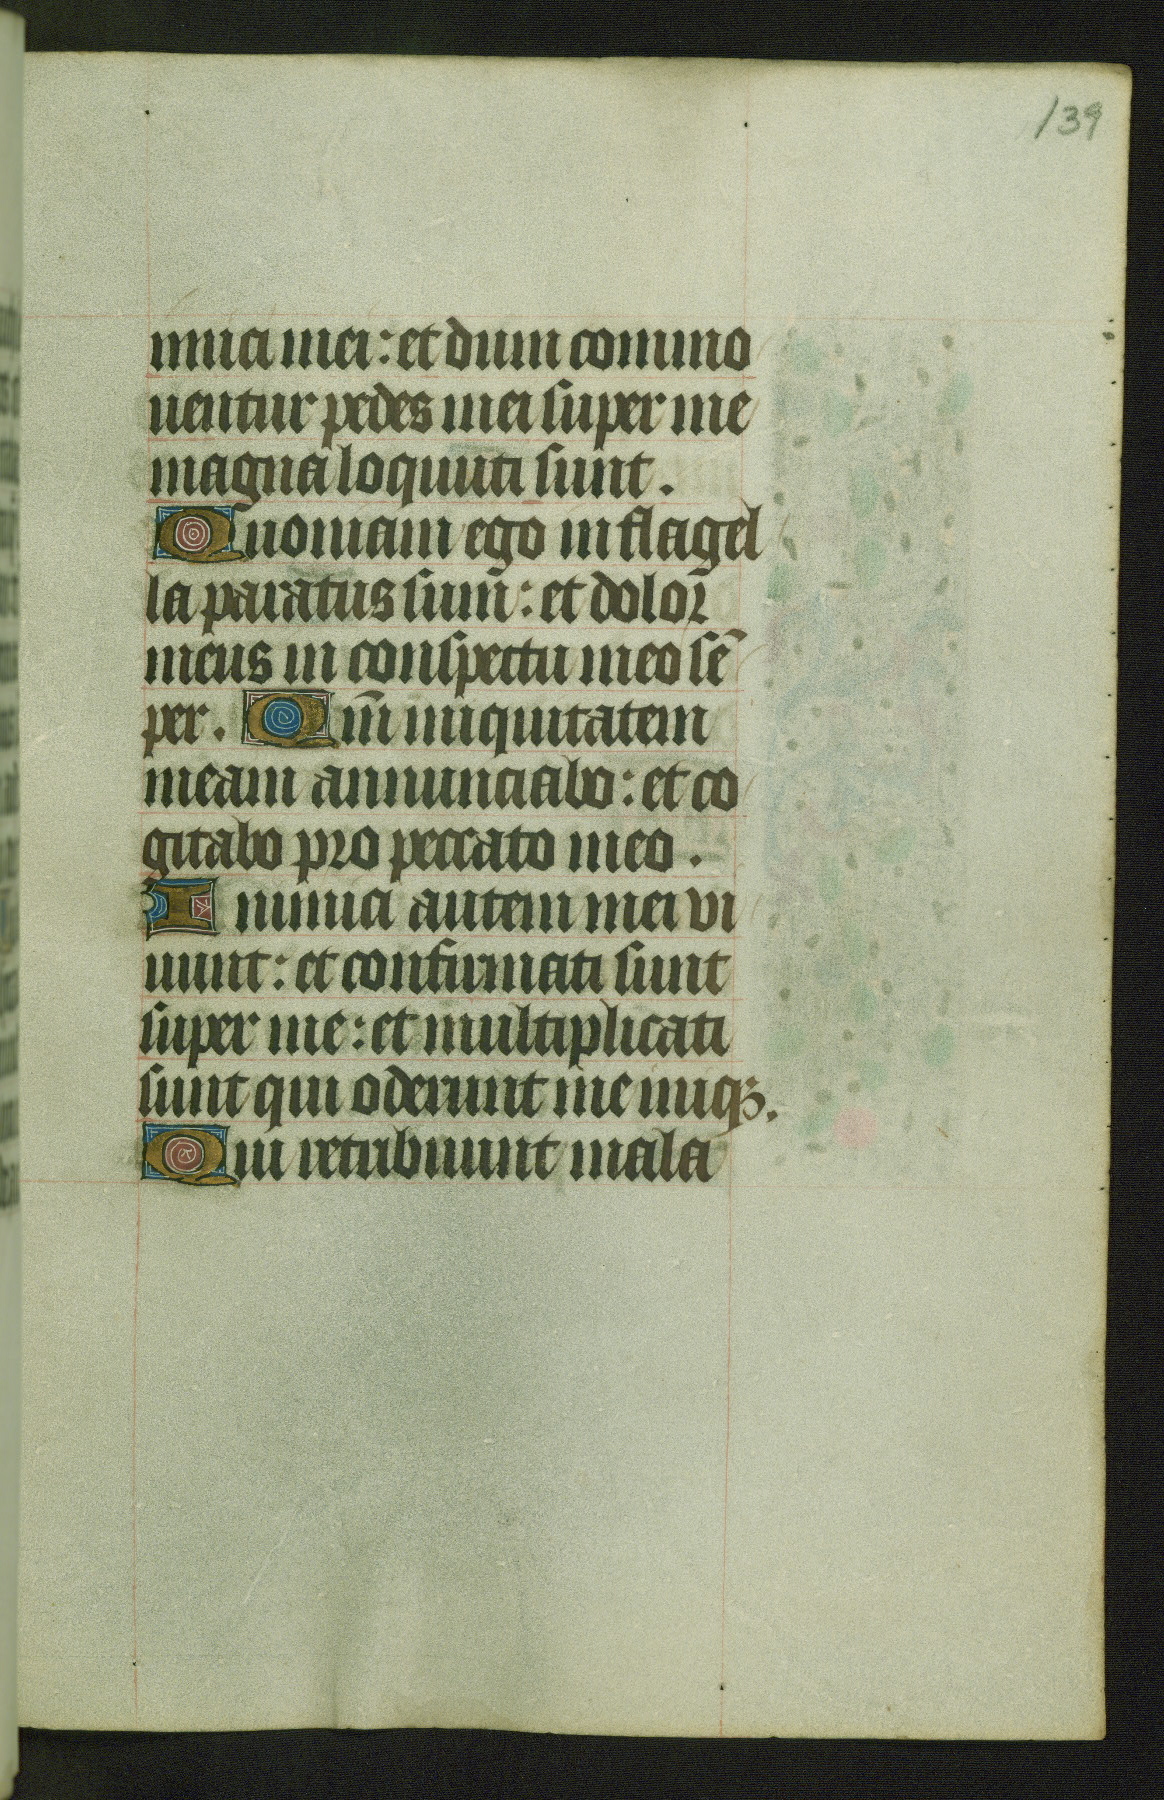 139
mici mei : et dum commo
uentur pedes mei super me
magna loquuti sunt .
Quoniam ego in flagel
la paratus sum̄ : et dolor̄
meus in conspectu meo sē
per . Qm̄ iniquitatem
meam annunciabo : et co
gitabo pro peccato meo .
Inimici autem mei vi
uunt : et confirmati sunt
super me : et multiplicati
sunt qui oderunt me iniqꝫ .
Qui retribuunt mala